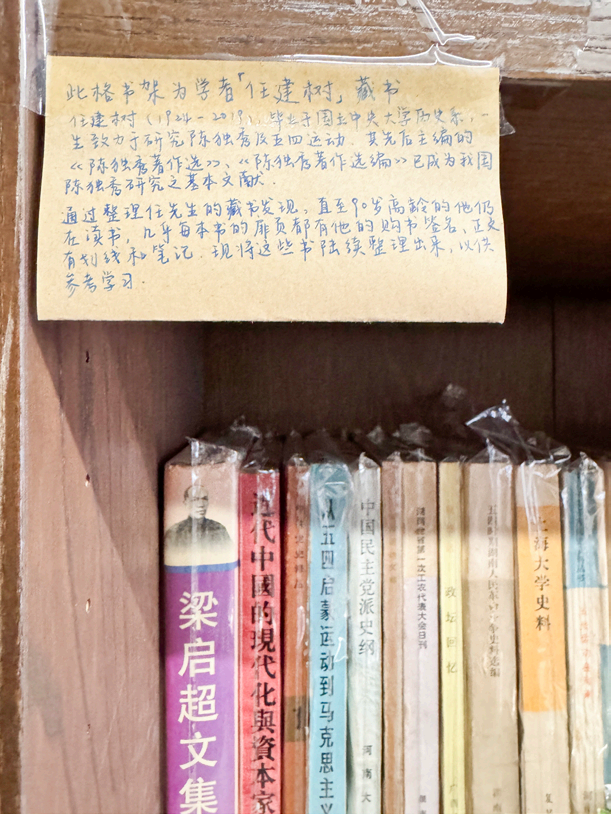 此格书架为学者「任建树」藏书
任建树（1924-2019），毕业于国立中央大学历史系，一
生致力于研究陈独秀及五四运动．其先后主编的
《陈独秀著作选》、《陈独秀著作选编》已成为我国
陈独秀研究之基本文献．
通过整理任先生的藏书发现，直至90岁高龄的他仍
在读书，几乎每本书的扉页都有他的购书签名，正文
有划线和笔记．现将这些书陆续整理出来，以供
参考学习．
梁启超文集
近代中國的現代化與資本家
从五四启蒙运动到马克思主义
中国民主党派史纲
河南大
第一次工农代表大会日刊
政坛回忆
广西
五四时期湖南人民革命斗争史料选编
湖南
上海大学史料
复旦